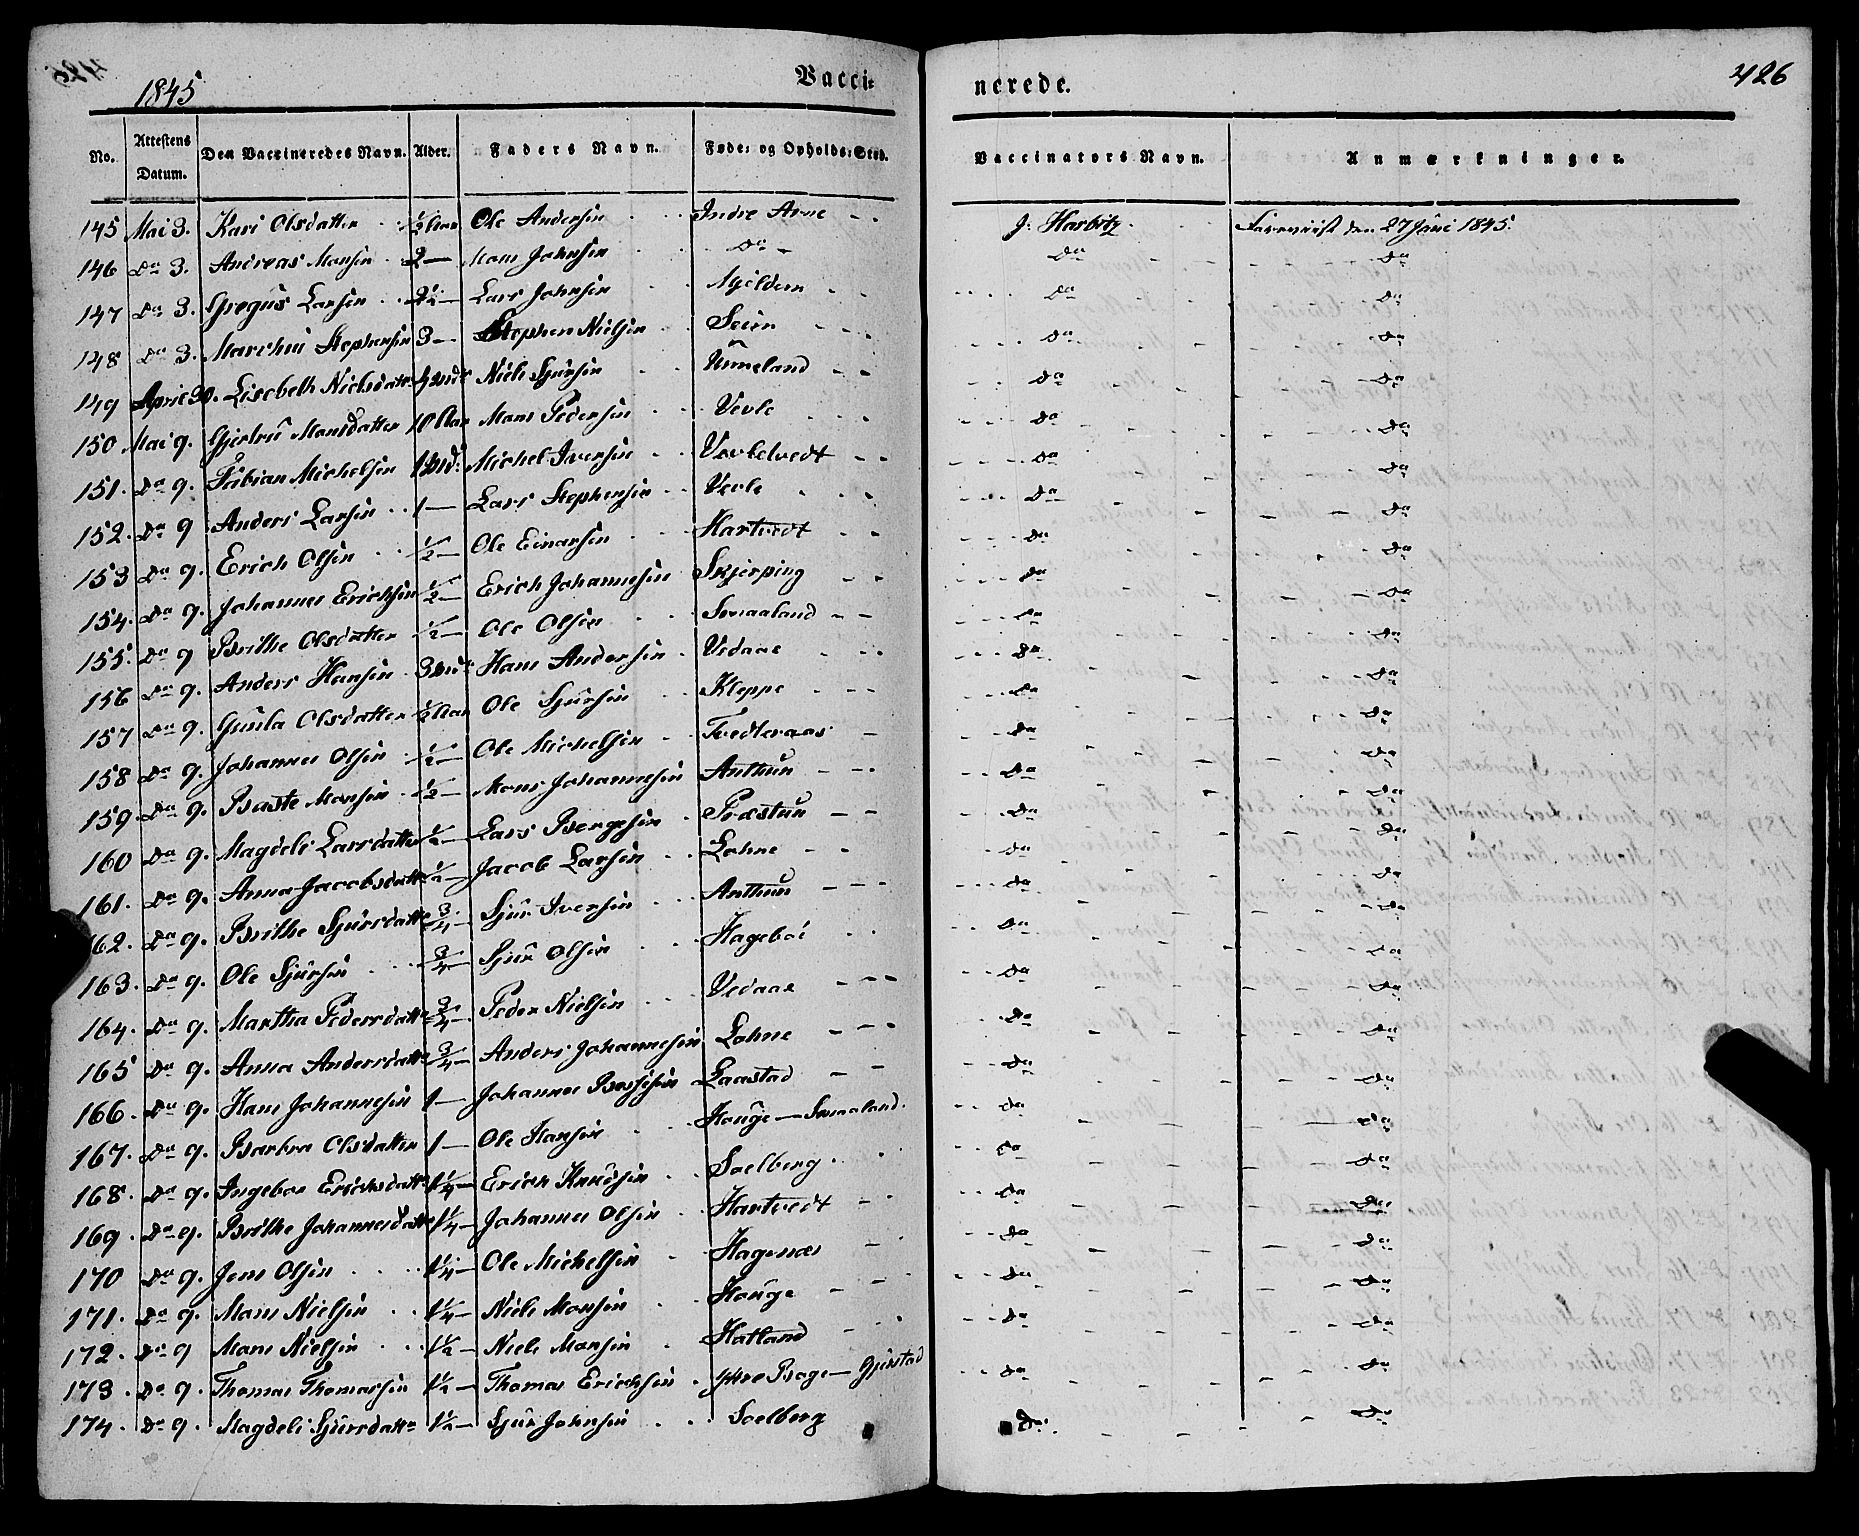 1845
Vacci-
nerede.
426
No. Attestens Datum. Den Vaccineredes Navn. Alder. Faders Navn. Føde- og Opholds-Sted. Vaccinators Navn. Anmærkninger.
145 Mai 3. Kari Olsdatter ½ Aar Ole Andersen Indre Arne J: Harbitz. Foreviist den 27 Juni 1845.
146 Do 3. Andreas Monsen 2 — Mons Johnsen Do Do Do
147 Do 3. Gregus Larsen 2½ — Lars Johnsen Mjeldem Do Do
148 Do 3. Marchus Stephensen 3 — Stephen Nielsen Seim Do Do
149 April 30. Lisebeth Nielsdatter Niels Sjursen Unneland Do Do
150 Mai 9. Gjertru Monsdatter 10 Aar Mons Pedersen Vevle Do Do
151. Do 9. Fabian Michelsen Michel Iversen Vevletvedt Do Do
152. Do 9 Anders Larsen 1 — Lars Stephensen Vevle Do Do
153 Do 9. Erich Olsen ½ — Ole Einarsen Hartvedt Do Do
154. Do 9. Johannes Erichsen ½ — Erich Johannesen Skjerping Do Do
155. Do 9 Brithe Olsdatter ½ — Ole Olsen Smaaland Do Do
156 Do 9. Anders Hansen 3 Mdr Hans Andersen Vedaae Do Do
157 Do 9. Gunla Olsdatter ½ Aar Ole Sjursen Kleppe Do Do
158 Do 9. Johannes Olsen ½ — Ole Michelsen Tvedteraas Do Do
159. Do 9. Baste Monsen ½ — Mons Johannesen Anthun Do Do
160 Do 9. Magdeli Larsdatter ½ — Lars Børgesen Præstun Do Do
161. Do 9. Anna Jacobsdatter ½ — Jacob Larsen Lohne Do Do
162. Do 9. Brithe Sjursdatter ¾ — Sjur Iversen Anthun Do Do
163. Do 9. Ole Sjursen ¾ — Sjur Olsen Hagebøe Do Do
164. Do 9. Martha Pedersdatter ¾ — Peder Nielsen Vedaae Do Do
165 Do 9. Anna Andersdatter ¾ — Anders Johannesen Lohne Do Do
166. Do 9. Hans Johannesen 1 — Johannes Laastad Do Do
167. Do 9. Barbra Olsdatter 1 — Ole Hansen Houge — Smaaland. Do Do
168. Do 9. Ingebor Erichsdatter 1¼ — Erich Knudsen Soelberg Do Do
169. Do 9. Brithe Johannesdatter 1¼ — Johannes Olsen Hartvedt Do Do
170 Do 9. Jens Olsen 1¼ — Ole Michelsen Hagenæs Do Do
171. Do 9. Mons Nielsen 1¼ — Niels Monsen Houge Do Do
172. Do 9 Mons Nielsen 1½ — Niels Monsen Hatland Do Do
173. Do 9. Thomas Thomassen 1½ — Thomas Erichsen Do Do
174. Do 9. Magdeli Sjursdatter 1½ — Sjur Johnsen Soelberg Do Do